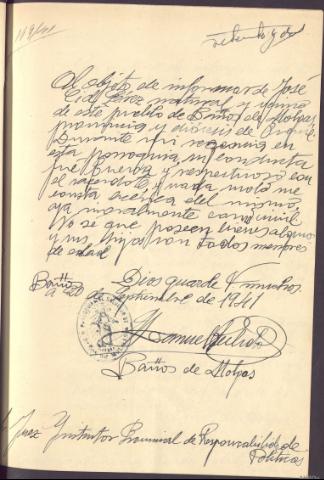 setenta y dos
Al objeto de informar de José
Cid Pérez natural y vecino
de este pueblo de Baños de Molgas
provincia y diócesis de Orense
Durante mi regencia en
esta parroquia, su conducta
fue buena y respetuoso con
el sacerdote y nada malo me
consta acerca del mismo,
ya moralmente como civil.
No sé que poseen bienes algunos
y sus hijos son todos menores
de edad
Dios guarde V muchos
Baños
a 20 de septiembre de 1941
Manuel
Baños de Molgas
Juez Instructor Provincial de Responsabilidades
Políticas